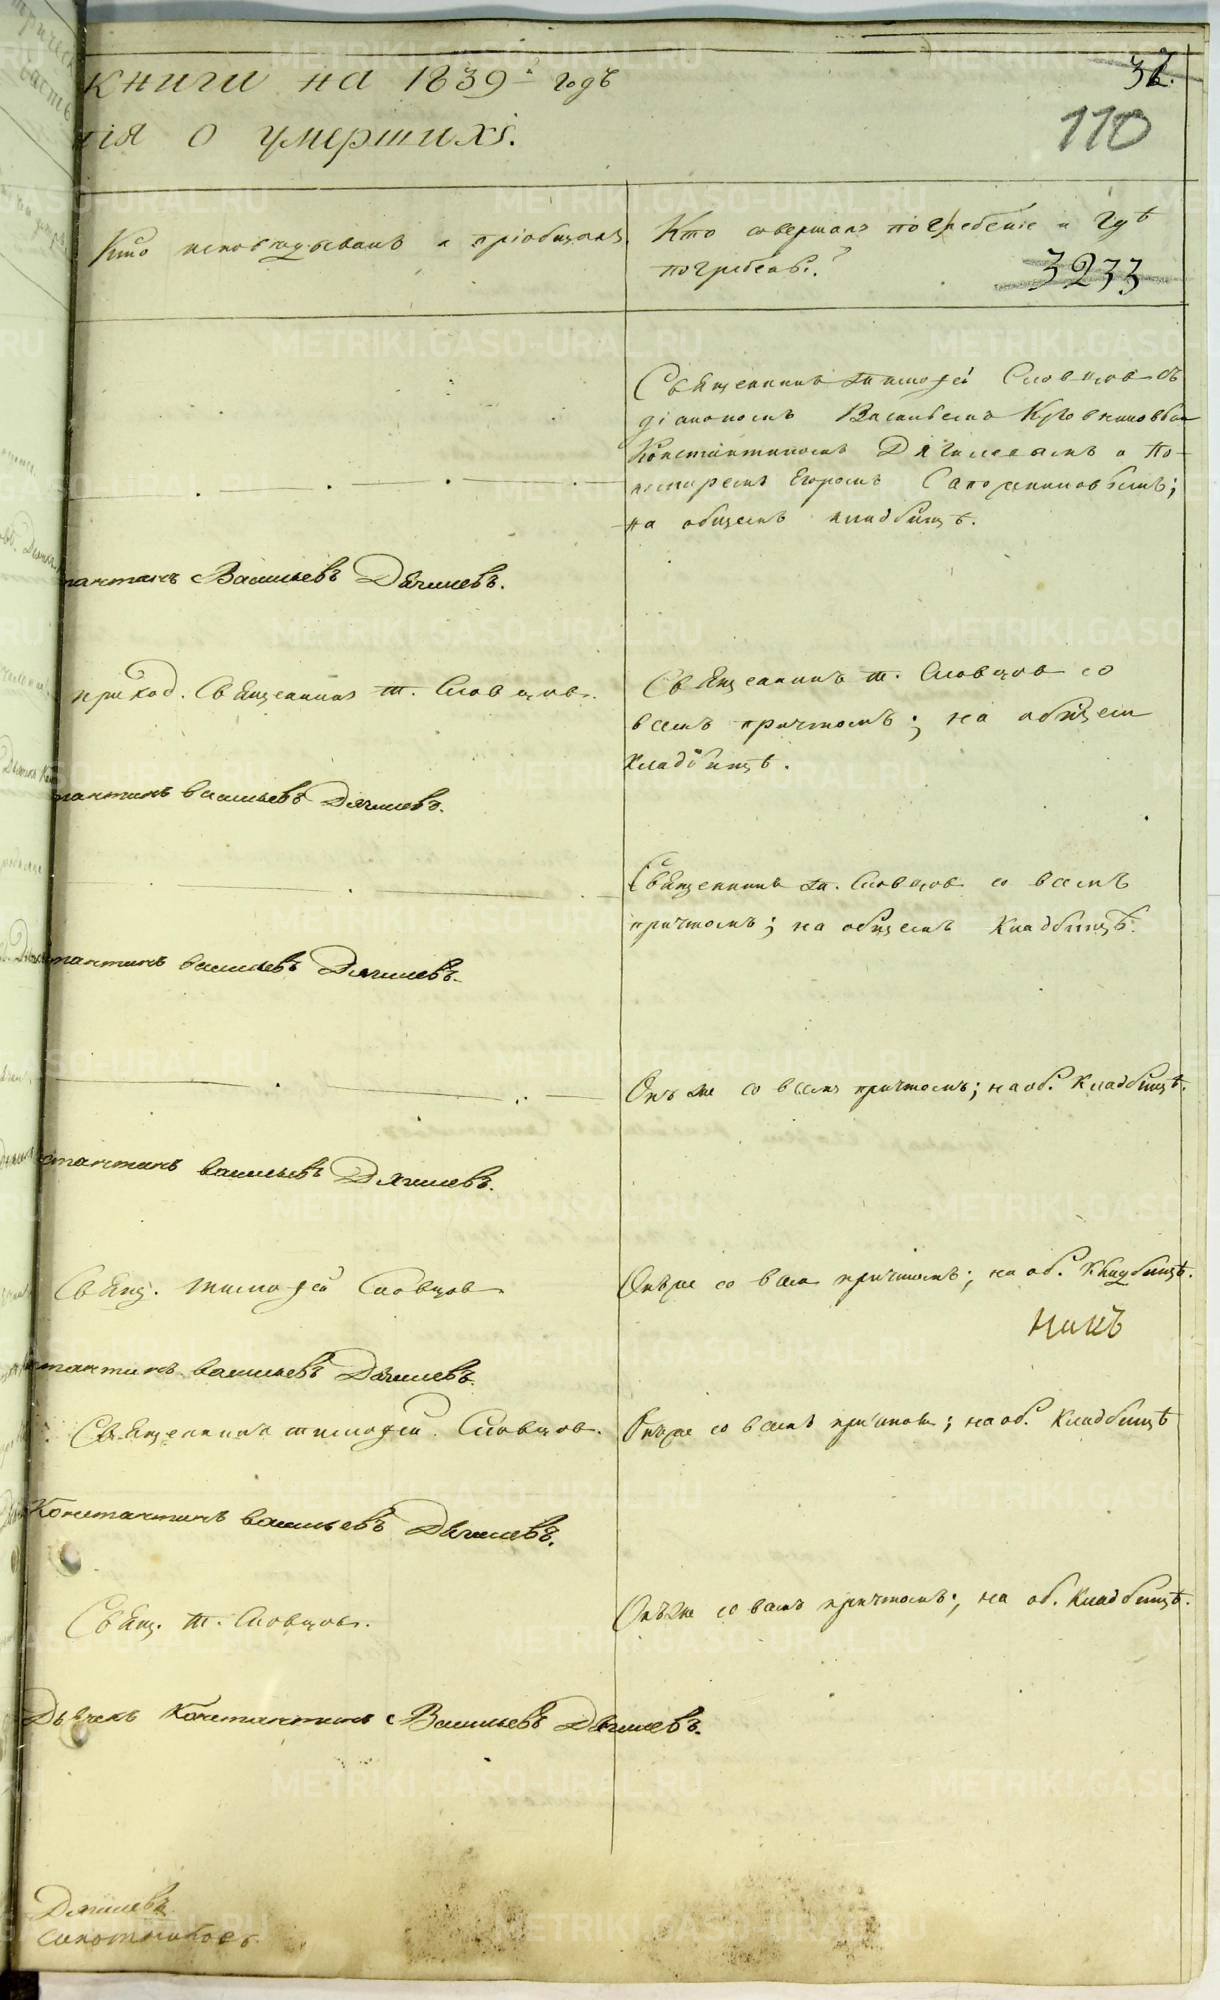 книги на 1839й годъ
37.
нія о умершихъ.
110
Кто исповѣдывалъ и пріобщалъ
Кто совершалъ погребеніе и гдѣ
погребенъ?
3233
Священникъ Тимофей Словцовъ съ
діакономъ Васильемъ
Константиномъ Дягилевымъ и по-
номаремъ Егоромъ Сапожниковымъ;
на общемъ кладбищѣ.
тантинъ Васильевъ Дягилевъ.
приход. Священникъ Т. Словцовъ.
Священникъ Т. Словцовъ со
всемъ причтомъ; на общем
кладбищѣ.
тантинъ Васильевъ Дягилевъ.
Священникъ Т. Словцов со всемъ
причтомъ; на общемъ кладбищѣ.
тантинъ Васильевъ Дягилевъ.
Онъ же со всемъ причтомъ; на об. кладбищѣ.
стантинъ Васильевъ Дягилевъ.
Свящ. Тимофей Словцов
Онъ же со всем причтомъ; на об. кладбищѣ.
стантинъ Васильевъ Дягилевъ.
Священникъ Тимофей Словцов.
Онъ же со всемъ причтом; на об. кладбищѣ
Константинъ Васильевъ Дягилевъ.
Свящ. Т. Словцовъ.
Онъ же со всемъ причтомъ; на об. кладбищѣ.
Дьячекъ Константинъ Васильевъ Дягилевъ.
Дягилевъ
METRIKI.GASO-URAL.RU